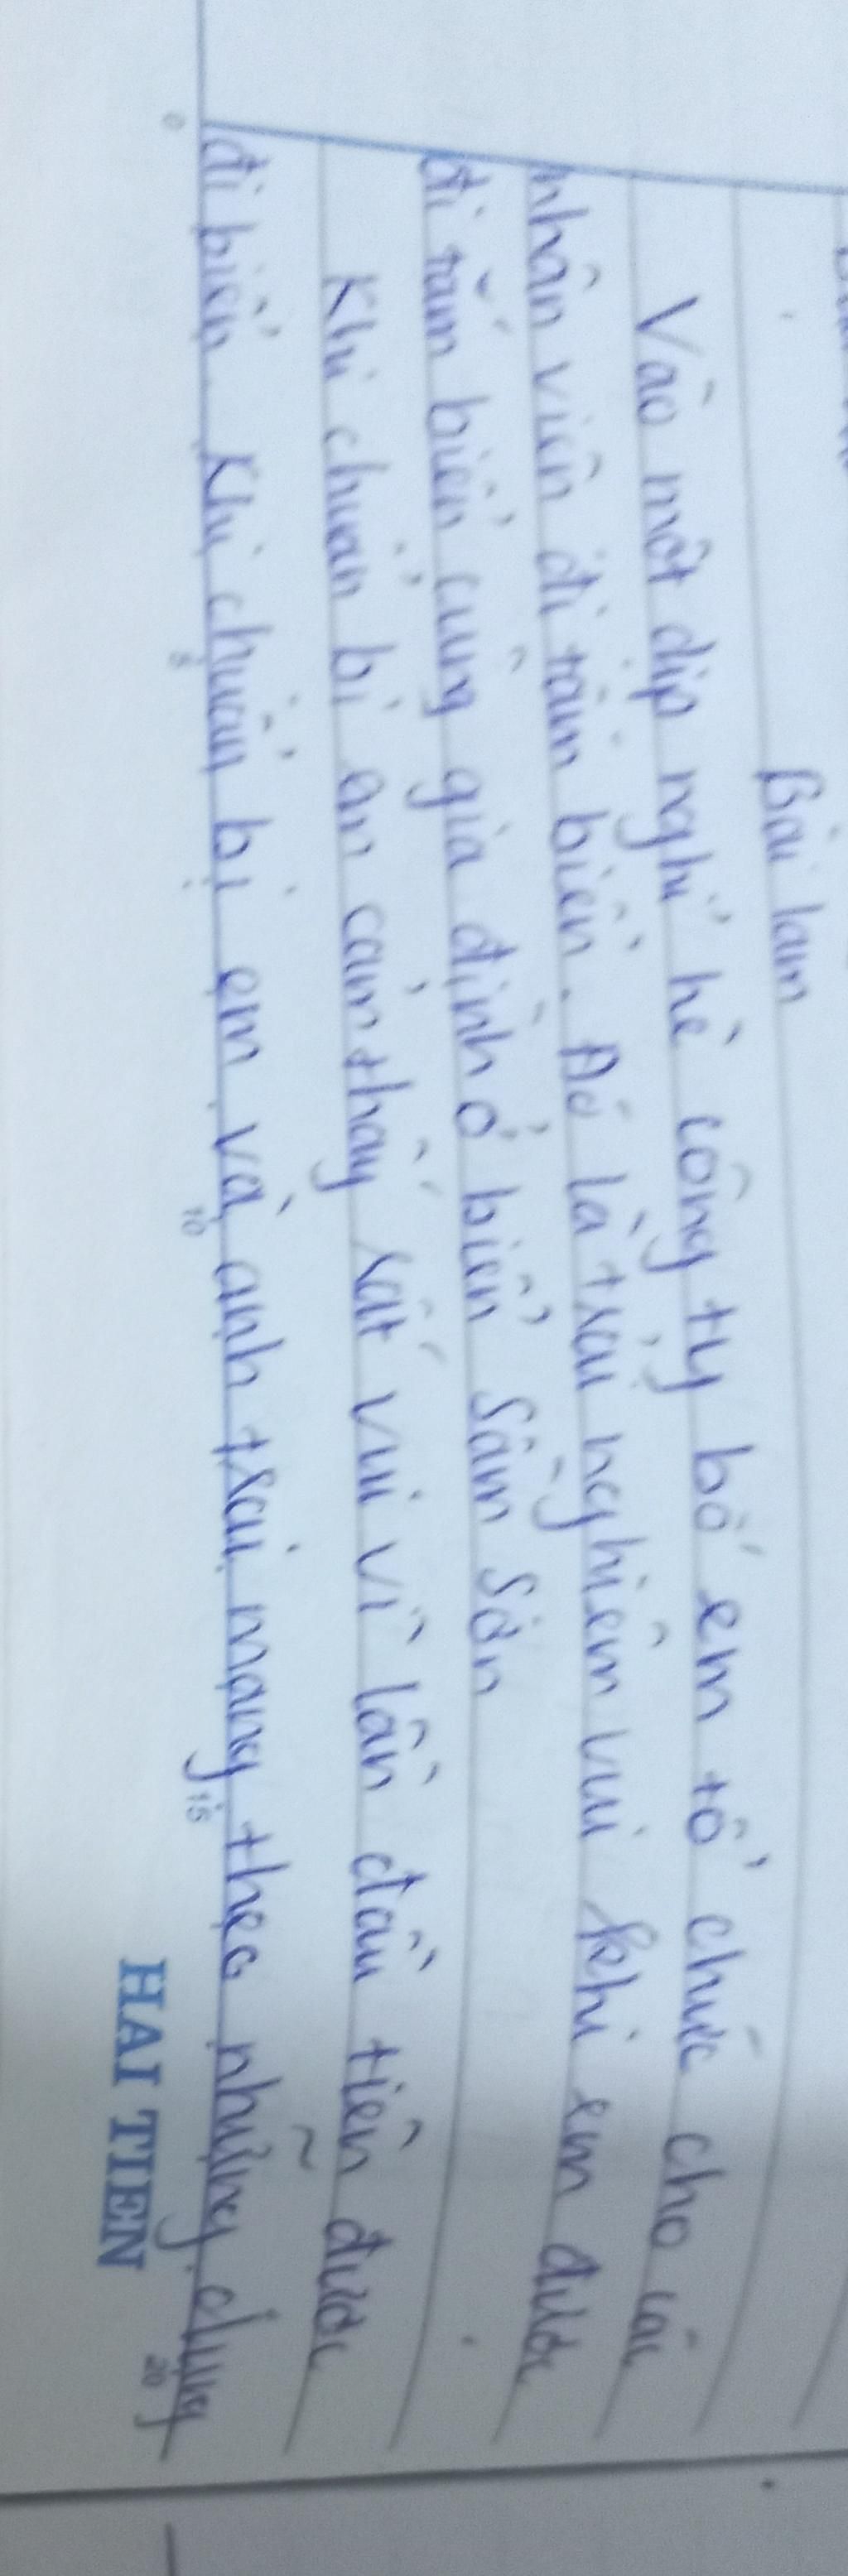 Bài làm
Vào một dịp nghỉ hè công ty bố em tổ chức cho các
nhân viên đi tắm biển. Đó là trải nghiệm vui khi em được
đi tắm biển cùng gia đình ở biển Sầm Sơn
Khi chuẩn bị em cảm thấy rất vui vì lần đầu tiên được
đi biển. Khi chuẩn bị em và anh trai mang theo những dụng
0 5 10 15 20
HAI TIEN